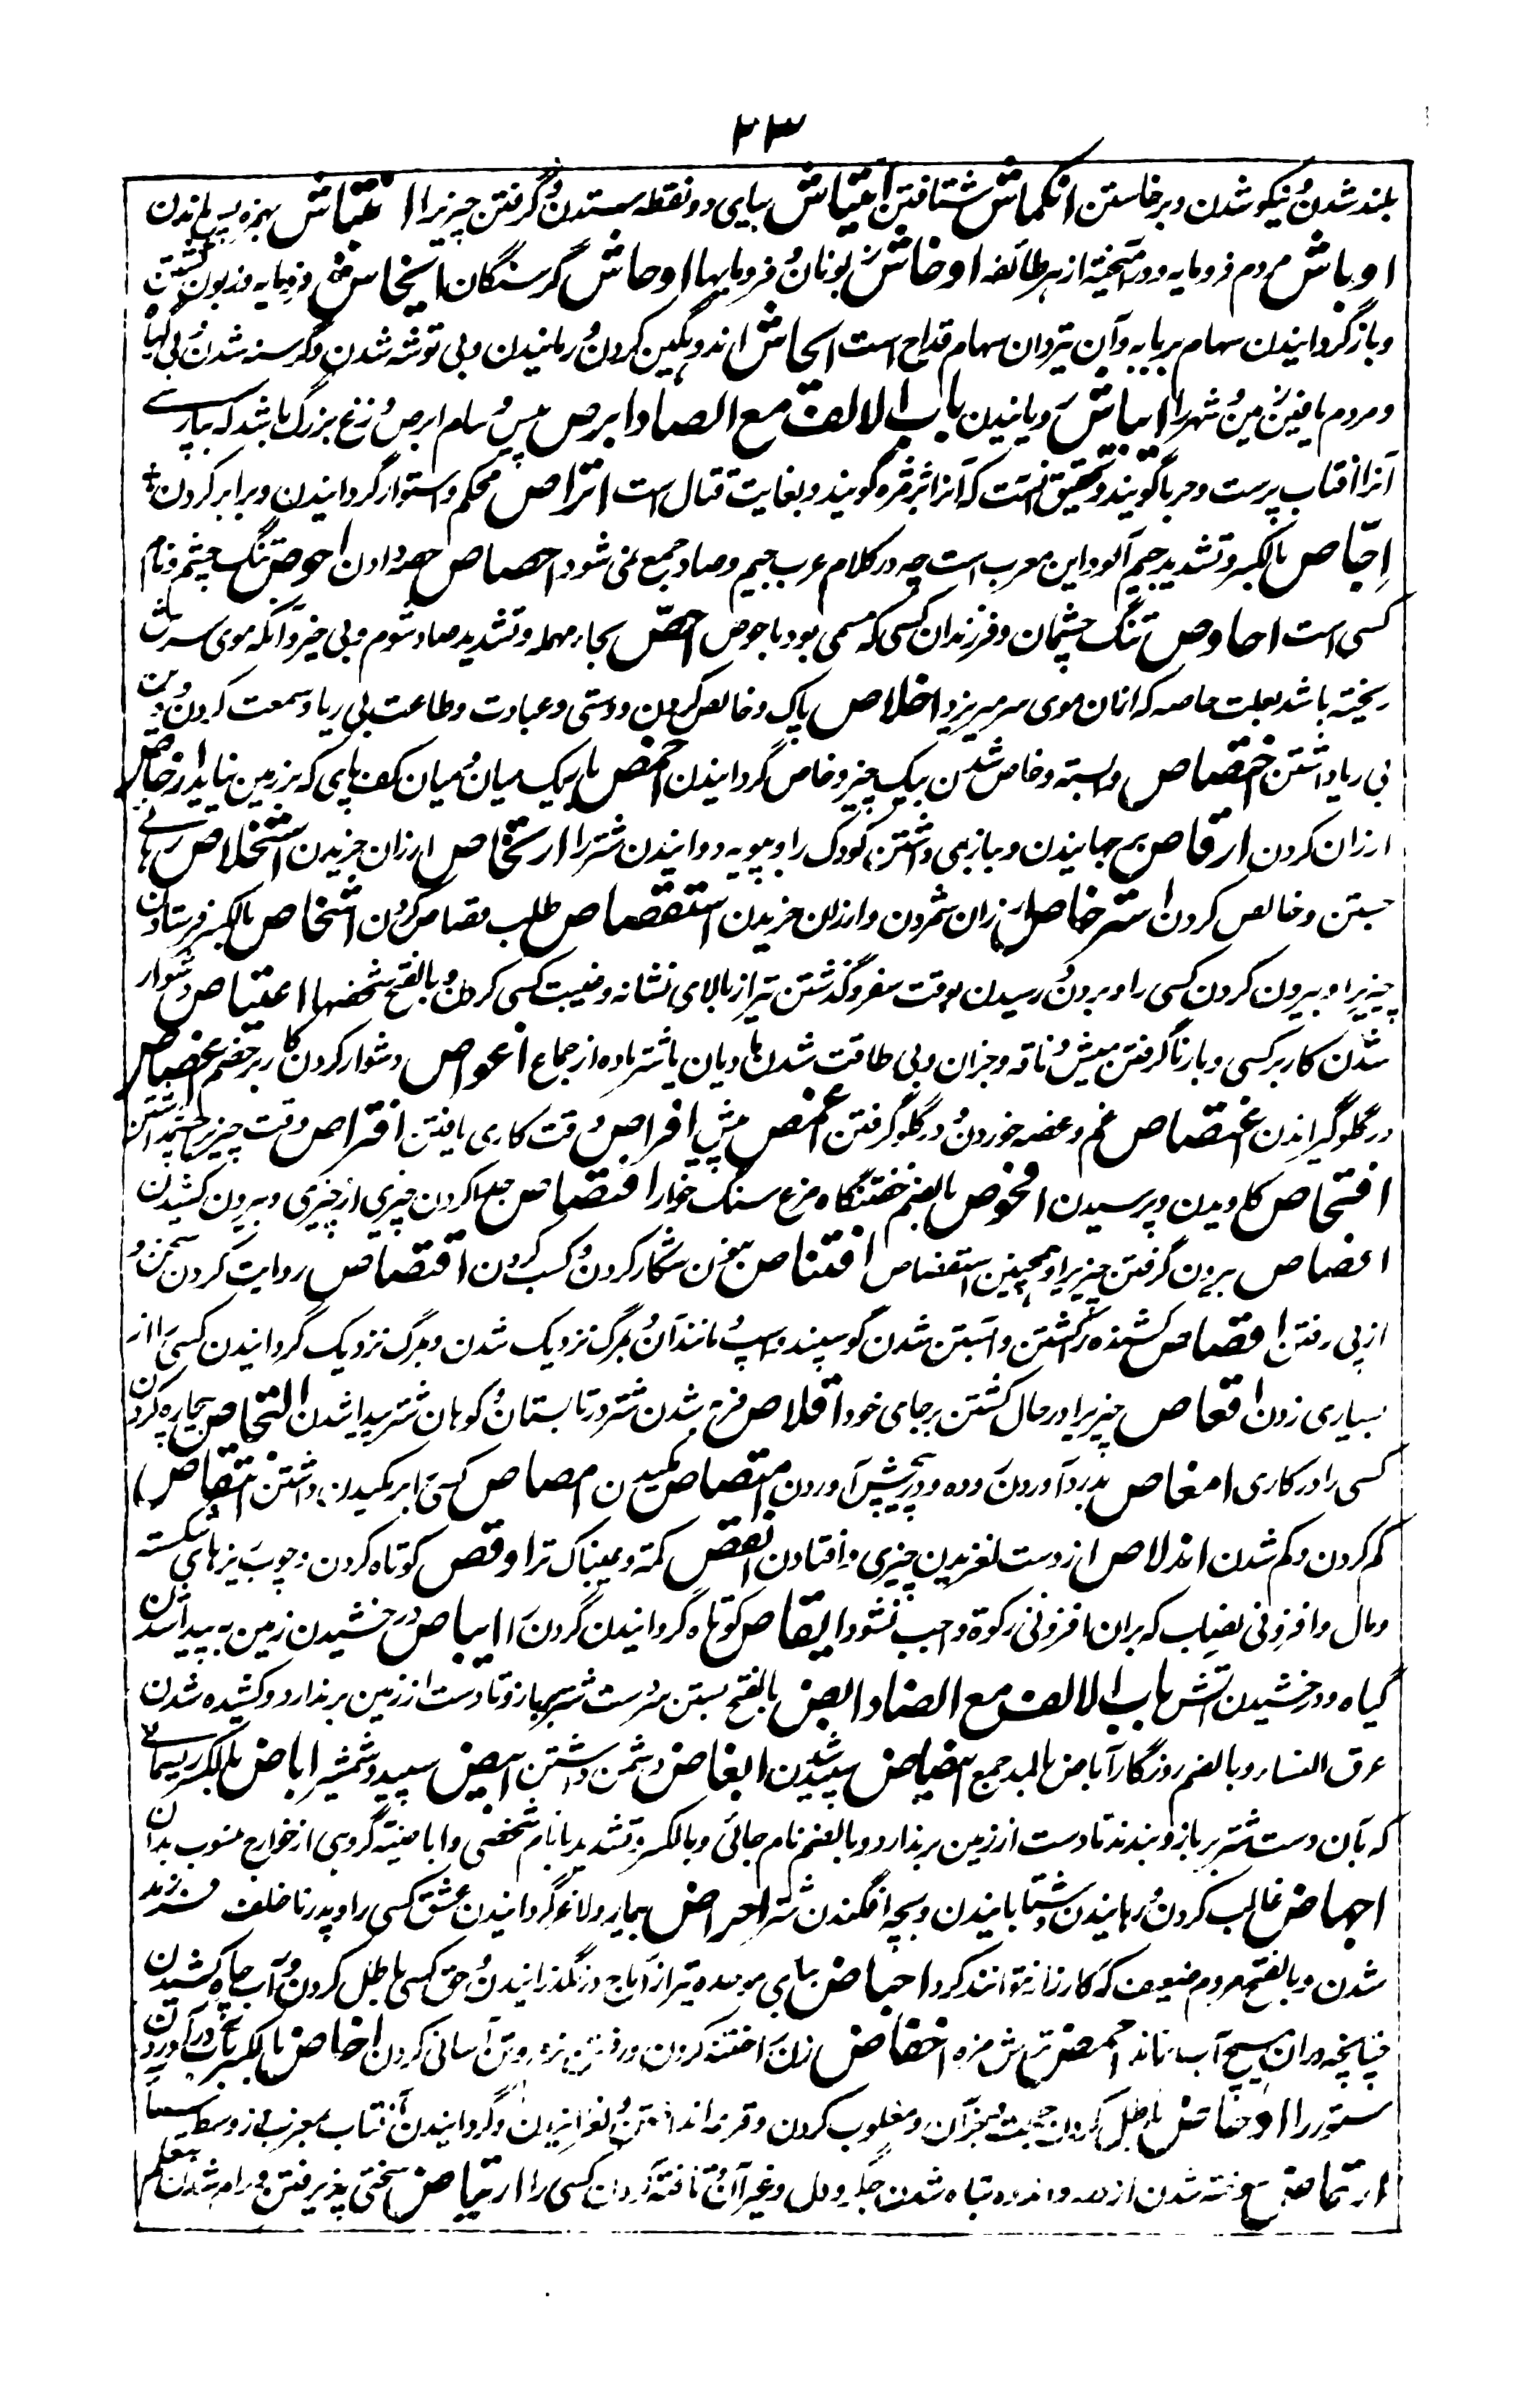 ۲۳
بلند شدن و نیکو شدن و برخاستن انکماش شتافتن اعتیاش بیای دو نقطه ستدن و گرفتن چیزیرا
اوباش مردم فرومایه و در آمیخته از هر طائفه اوخاش زبونان و فرومایها اوحاش گرسنگان ایخاش فرومایه و زبون
و باز گردانیدن سهام بربابه و آن تیردان سهام قداح است ایحاش اندوهگین کردن و رمانیدن و بی توشه شدن و گرسنه شدن و بی گیاه
و مردم یافتن زمین و شهر را ایباش رویانیدن باب الالف مع الصاد ابرص پیس و سام ابرص وزغ بزرگ باشد که بپارسی
آنرا آفتاب پرست و حربا گویند و تحقیق آنست که آنرا بژمژه گویند و بغایت قتال است اتراص محکم و استوار گردانیدن و برابر کردن
اجّاص بالکسر و تشدید جیم آلو و این معرب است چه در کلام عرب جیم و صاد جمع نمی شود احصاص حصه دادن احوص تنگ چشم و نام
کسی است احاوص تنگ چشمان و فرزندان کسی که مسمی بود باحوص احصّ بحاء مهمله و تشدید صاد شوم و بی خیر و آنکه موی سرش
ریخته باشد بعلت حاصه که ازان موی سر میریزد اخلاص پاک و خالص کردن دوستی و عبادت و طاعت بی ریا و سمعت کردن و دین
بی ریا داشتن اختصاص وابسته و خاص شدن بیک چیز و خاص گردانیدن اخمص باریک میان و میان کف پای که بزمین نیاید ارخاص
ارزان کردن ارقاص بر جهانیدن و ببازی داشتن کودک را و بپویه دوانیدن شتر را ارتخاص ارزان خریدن استخلاص رهائی
جستن و خالص کردن استرخاص ارزان شمردن و ارزان خریدن استقصاص طلب قصاص کردن اشخاص بالکسر فرستادن
چیزیرا و بیرون کردن کسی را و بردن و رسیدن وقت سفر و گذشتن تیر از بالای نشانه و غیبت کسی کردن و بالفتح شخصها اعتیاص دشوار
شدن کار بر کسی و بار نا گرفتن میش و ناقه و جزان و بی طاقت شدن مادیان یا شتر ماده از جماع اعواص دشوار کردن کار بر خصم اغصاص
در گلو گیراندن اغتصاص غم و غصه خوردن و در گلو گرفتن اغمص افراص وقت کاری یافتن افتراص وقت چیزیرا
افتحاص کاویدن و پرسیدن افحوص بالضم خفتنگاه مرغ سنگ خوار افتصاص جدا کردن چیزی از چیزی و بیرون کشیدن
افصاص بیرون گرفتن چیزیرا و همچنین استفصاص اقتناص بنون شکار کردن و کسب کردن اقتصاص روایت کردن سخن و
از پی رفتن اقصاص کشنده را کشتن و آبستن شدن گوسپند و اسپ و مانند آن و بمرگ نزدیک شدن و بمرگ نزدیک گردانیدن کسی را از
بسیاری زدن اقعاص چیزیرا در حال کشتن بر جای خود اقلاص فربه شدن شتر در تابستان و کوهان شتر پیدا شدن التحاص بیچاره کردن
کسی را در کاری امغاص بدرد آوردن امتصاص مکیدن امصاص کسی را بر مکیدن داشتن انتقاص
کم کردن و کم شدن اندلاص از دست لغزیدن چیزی و افتادن انقص کمتر و عیبناک تر اوقص کوتاه گردن و چوب ریزهای شکسته
و مال و افزونی نصاب که بران افزونی زکوة واجب نشود ایقاص کوتاه گردانیدن گردن را ایباص درخشیدن زمین به پیدا شدن
گیاه و درخشیدن آتش باب الالف مع الضاد ابض بالفتح بستن دست شتر ببازو تا دست از زمین بردارد و کشیده شدن
عرق النسا و بالضم روزگار آباض بالمد جمع ابیضاض سپید شدن ابغاض دشمن داشتن ابیض سپید و شمشیر اباض بالکسر ریسمانی
که بآن دست شتر بر بازو بندند تا دست از زمین بردارد و بالضم نام جائی و بالکسر و تشدید یا نام شخصی و اباضیه گروهی از خوارج منسوب بدان
اجهاض غالب کردن و رهانیدن و شتابانیدن و بچه افگندن شتر احراض بیمار و لاغر گردانیدن عشق کسی را و پدر ناخلف فرزند
شدن و بالفتح مردم ضعیف که کارزار نتوانند کرد احباض ببای موحده تیر از آماج در نگذرانیدن و حق کسی باطل کردن و آب چاه کشیدن
چنانچه دران هیچ آب نماند احمض ترش مزه اخفاض زن را ختنه کردن و آسانی کردن اخاض بالکسر بآب در آوردن
ستور را ادحاض باطل کردن حجت و جز آن و مغلوب کردن و قرعه انداختن و لغزانیدن و گردانیدن آفتاب بمغرب از وسط سما
ارتماض سوخته شدن از درد و اندوه و تباه شدن جگر و دل و غیر آن ارتیاض سختی پذیرفتن و رام شدن